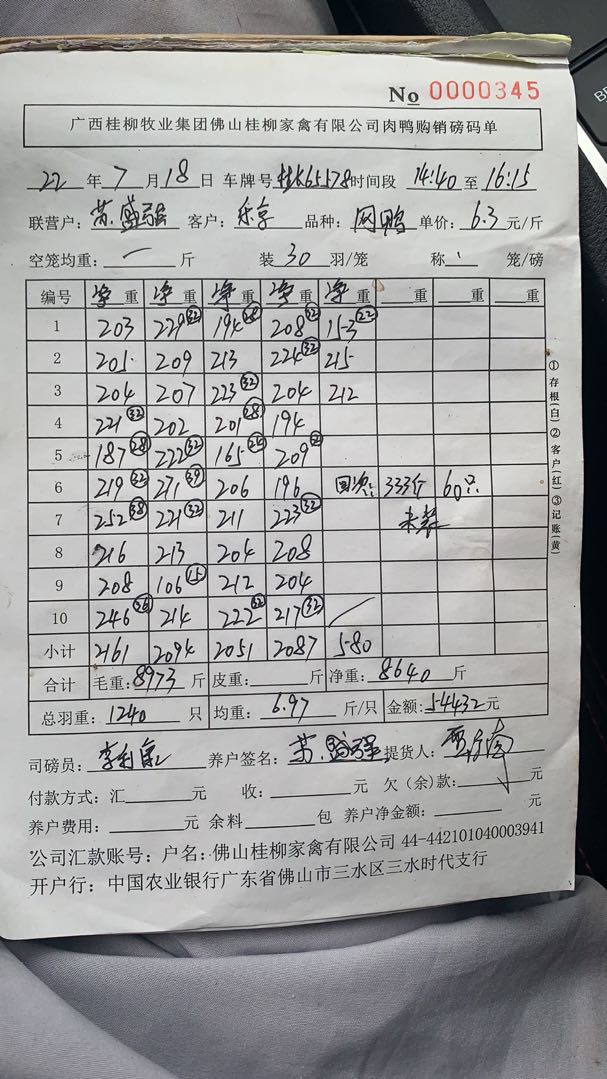 No 0000345
广西桂柳牧业集团佛山桂柳家禽有限公司肉鸭购销磅码单
22 年 7 月 18 日 车牌号 桂K65578 时间段 14:40 至 16:15
联营户: 苏 客户: 乐享 品种: 网鸭 单价: 6.3 元/斤
空笼均重: 一 斤 装 30 羽/笼 称 笼/磅
编号 净重 净重 净重 净重 净 重 重 重
1 203 229 (32) 194 (28) 208 (32) 153 (22)
2 201 209 213 224 (32) 215
3 204 207 223 (32) 204 212
4 221 (32) 202 201 (28) 194
5 187 (28) 222 (32) 165 (24) 209
6 219 (32) 271 (39) 206 196 333斤 60只
7 252 (38) 221 (32) 211 223 (32)
8 216 213 204 208
9 208 106 (15) 212 204
10 246 (36) 214 222 (32) 217 (32)
小计 2161 2094 2051 2087 580
合计 毛重: 8973 斤 皮重: 斤 净重: 8640 斤
总羽重: 1240 只 均重: 6.97 斤/只 金额: 54432 元
司磅员: 李 养户签名: 苏 提货人:
付款方式: 汇 元 收: 元 欠(余)款: 元
养户费用: 元 余料 包 养户净金额: 元
公司汇款账号: 户名: 佛山桂柳家禽有限公司 44-442101040003941
开户行: 中国农业银行广东省佛山市三水区三水时代支行
①存根(白)②客户(红)③记账(黄)